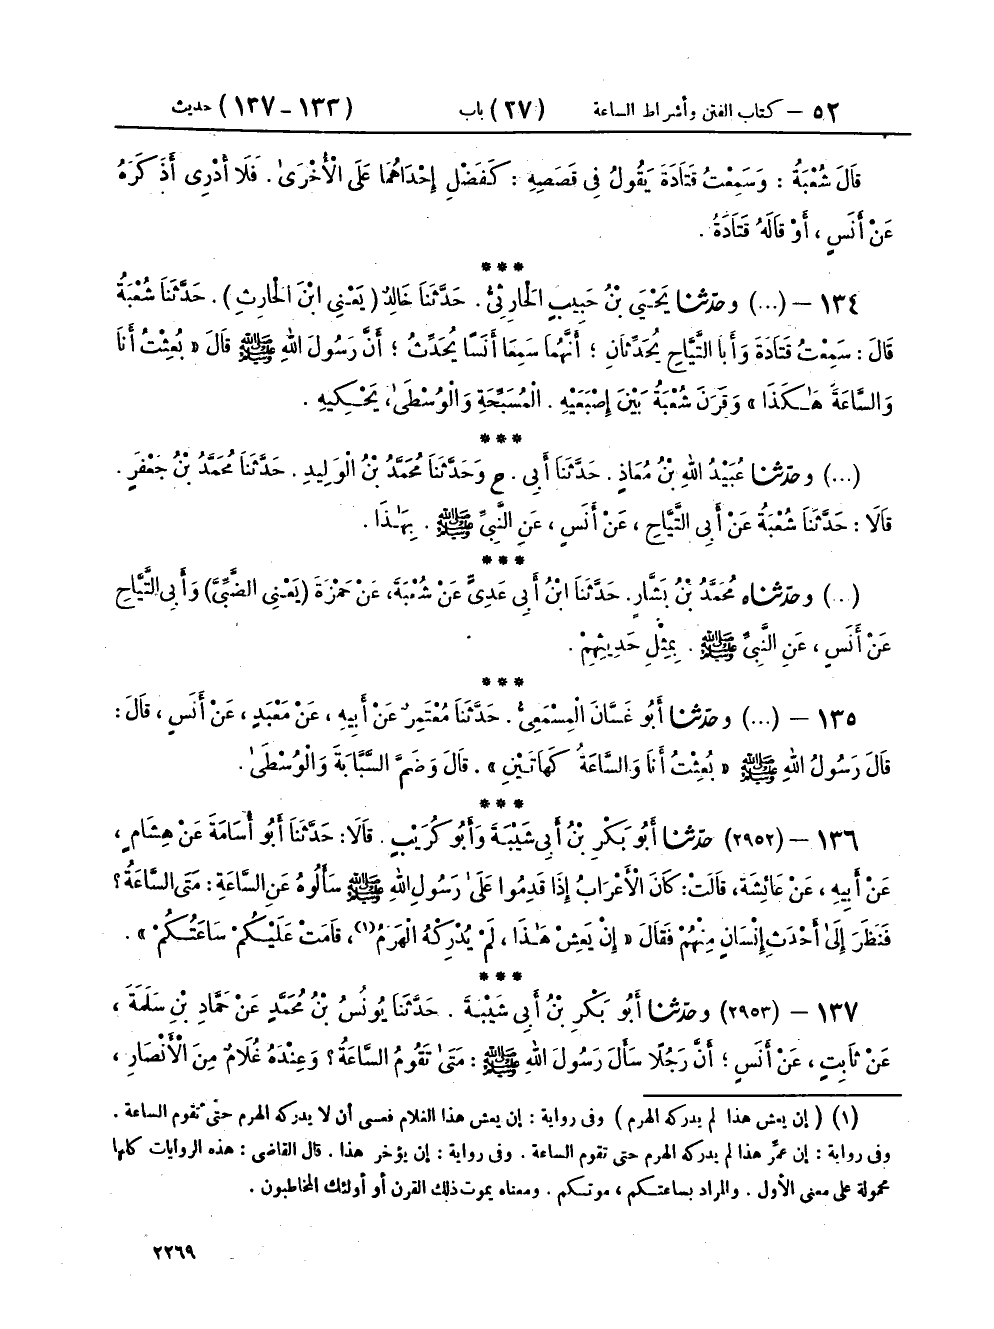 ٥٢ – كتاب الفتن وأشراط الساعة (٢٧) باب (١٣٣ – ١٣٧) حديث
قَالَ شُعْبَةُ : وَسَمِعْتُ قَتَادَةَ يَقُولُ فِى قَصَصِهِ : كَفَضْلِ إِحْدَاهُمَا عَلَى الْأُخْرَىٰ . فَلَا أَدْرِى أَذَكَرَهُ
عَنْ أَنَسٍ ، أَوْ قَالَهُ قَتَادَةُ .
***
١٣٤ – (...) وحدّثنا يَحْيَى بْنُ حَبِيبٍ الْحَارِثِىُّ . حَدَّثَنَا خَالِدٌ ( يَعْنِى ابْنَ الْحَارِثِ ) . حَدَّثَنَا شُعْبَةُ
قَالَ : سَمِعْتُ قَتَادَةَ وَأَبَا التَّيَّاحِ يُحَدِّثَانِ ؛ أَنَّهُمَا سَمِعَا أَنَسًا يُحَدِّثُ ؛ أَنَّ رَسُولَ اللهِ ﷺ قَالَ « بُعِثْتُ أَنَا
وَالسَّاعَةَ هَـٰكَذَا » وَقَرَنَ شُعْبَةُ بَيْنَ إِصْبَعَيْهِ . الْمُسَبِّحَةِ وَالْوُسْطَىٰ، يَحْكِيهِ .
***
(...) وحدّثنا عُبَيْدُ اللهِ بْنُ مُعَاذٍ . حَدَّثَنَا أَبِى . ح وَحَدَّثَنَا مُحَمَّدُ بْنُ الْوَلِيدِ . حَدَّثَنَا مُحَمَّدُ بْنُ جَعْفَرٍ .
قَالَا : حَدَّثَنَا شُعْبَةُ عَنْ أَبِى التَّيَّاحِ ، عَنْ أَنَسٍ ، عَنِ النَّبِىِّ ﷺ . بِهَـٰذَا .
***
(...) وحدّثناه مُحَمَّدُ بْنُ بَشَّارٍ. حَدَّثَنَا ابْنُ أَبِى عَدِىٍّ عَنْ شُعْبَةَ، عَنْ حَمْزَةَ (يَعْنِى الضَّبِّىَّ) وَأَبِى التَّيَّاحِ
عَنْ أَنَسٍ ، عَنِ النَّبِىِّ ﷺ . بِمِثْلِ حَدِيثِهِمْ .
***
١٣٥ – (...) وحدّثنا أَبُو غَسَّانَ الْمِسْمَعِىُّ . حَدَّثَنَا مُعْتَمِرٌ عَنْ أَبِيهِ ، عَنْ مَعْبَدٍ ، عَنْ أَنَسٍ ، قَالَ :
قَالَ رَسُولُ اللهِ ﷺ « بُعِثْتُ أَنَا وَالسَّاعَةُ كَهَاتَيْنِ » . قَالَ وَضَمَّ السَّبَّابَةَ وَالْوُسْطَىٰ .
***
١٣٦ – (٢٩٥٢) حدّثنا أَبُو بَكْرِ بْنُ أَبِى شَيْبَةَ وَأَبُو كُرَيْبٍ . قَالَا: حَدَّثَنَا أَبُو أُسَامَةَ عَنْ هِشَامٍ ،
عَنْ أَبِيهِ ، عَنْ عَائِشَةَ، قَالَتْ: كَانَ الْأَعْرَابُ إِذَا قَدِمُوا عَلَىٰ رَسُولِ اللهِ ﷺ سَأَلُوهُ عَنِ السَّاعَةِ : مَتَى السَّاعَةُ ؟
فَنَظَرَ إِلَىٰ أَحْدَثِ إِنْسَانٍ مِنْهُمْ فَقَالَ « إِنْ يَعِشْ هَـٰذَا ، لَمْ يُدْرِكْهُ الْهَرَمُ(١)، قَامَتْ عَلَيْكُمْ سَاعَتُكُمْ » .
***
١٣٧ – (٢٩٥٣) وحدّثنا أَبُو بَكْرِ بْنُ أَبِى شَيْبَةَ . حَدَّثَنَا يُونُسُ بْنُ مُحَمَّدٍ عَنْ حَمَّادِ بْنِ سَلَمَةَ ،
عَنْ ثَابِتٍ ، عَنْ أَنَسٍ ؛ أَنَّ رَجُلًا سَأَلَ رَسُولَ اللهِ ﷺ : مَتَىٰ تَقُومُ السَّاعَةُ ؟ وَعِنْدَهُ غُلَامٌ مِنَ الْأَنْصَارِ ،
(١) ( إن يعش هذا لم يدركه الهرم ) وفى رواية : إن يعش هذا الغلام فعسى أن لا يدركه الهرم حتى تقوم الساعة .
وفى رواية : إن عمّر هذا لم يدركه الهرم حتى تقوم الساعة . وفى رواية : إن يؤخر هذا . قال القاضى : هذه الروايات كلها
محمولة على معنى الأول . والمراد بساعتكم ، موتكم . ومعناه يموت ذلك القرن أو أولئك المخاطبون .
٢٢٦٩